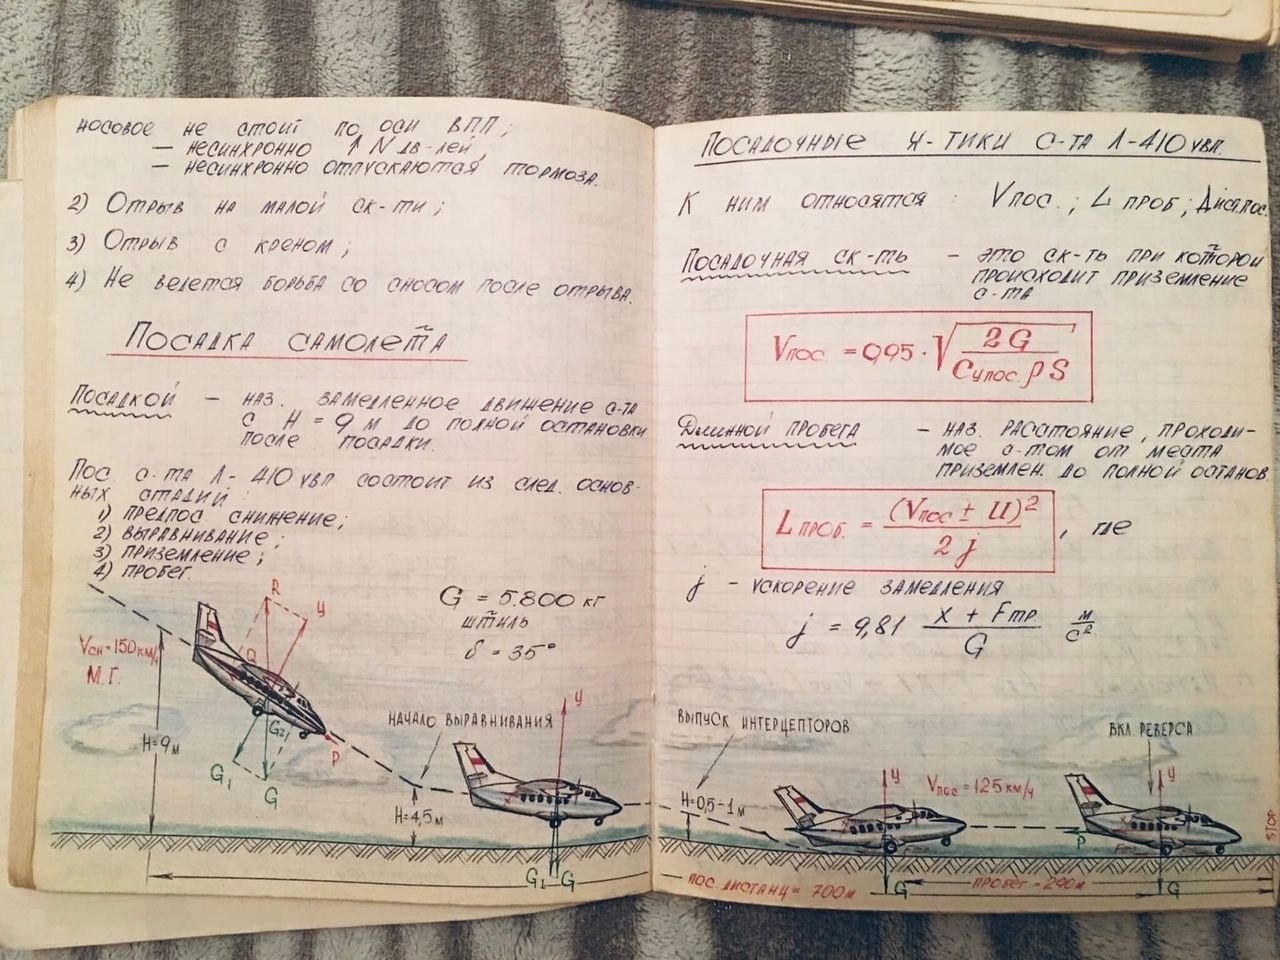 носовое не стоит по оси ВПП;
– несинхронно ↑ N дв-лей,
– несинхронно отпускаются тормоза.
2) Отрыв на малой ск-ти;
3) Отрыв с креном;
4) Не ведется борьба со сносом после отрыва.
Посадка самолета
Посадкой – наз. замедленное движение с-та
с H = 9 м до полной остановки
после посадки.
Пос. с-та Л-410 увп состоит из след. основ-
ных стадий:
1) предпос. снижение;
2) выравнивание;
3) приземление;
4) пробег.
G = 5.800 кг
штиль
δ = 35°
Vсн = 150 км/ч
М.Г.
R
У
Q
G2
P
G1
G
H = 9 м
начало выравнивания
H = 4,5 м
У
X
G1 G
Посадочные х-тики с-та Л-410 увп.
К ним относятся: Vпос.; L проб; Дист.пос.
Посадочная ск-ть – это ск-ть при которой
происходит приземление
с-та
Vпос. = 0,95 · √ 2G / Cупос. ρ S
Длинной пробега – наз. расстояние, проходи-
мое с-том от места
приземлен. до полной останов.
L проб. = (Vпос ± U)² / 2j , где
j – ускорение замедления
j = 9,81 X + Fтр / G м/с²
выпуск интерцепторов
вкл. реверса
H = 0,5-1 м
У
Vпос = 125 км/ч
У
X
P
Fтр
Fтр
STOP
пос. дистанц = 700 м
G
пробег = 290 м
G